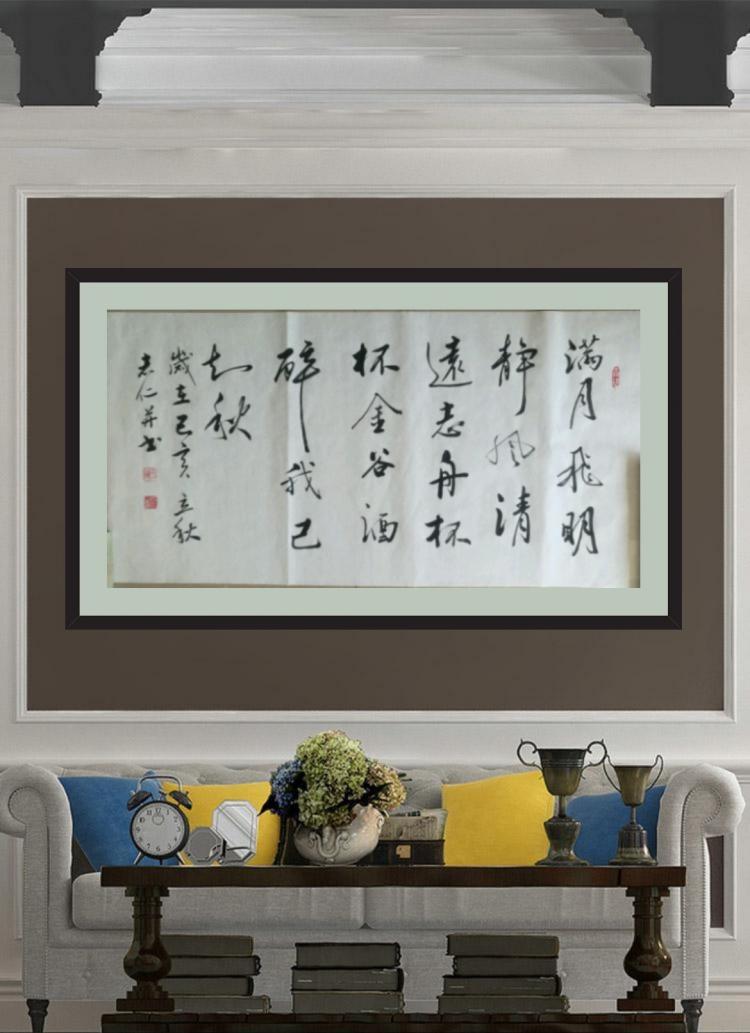 满月飛明
静風清
遠志舟杯
杯金谷酒
醉我已
知秋
歲在己亥立秋
志仁并书